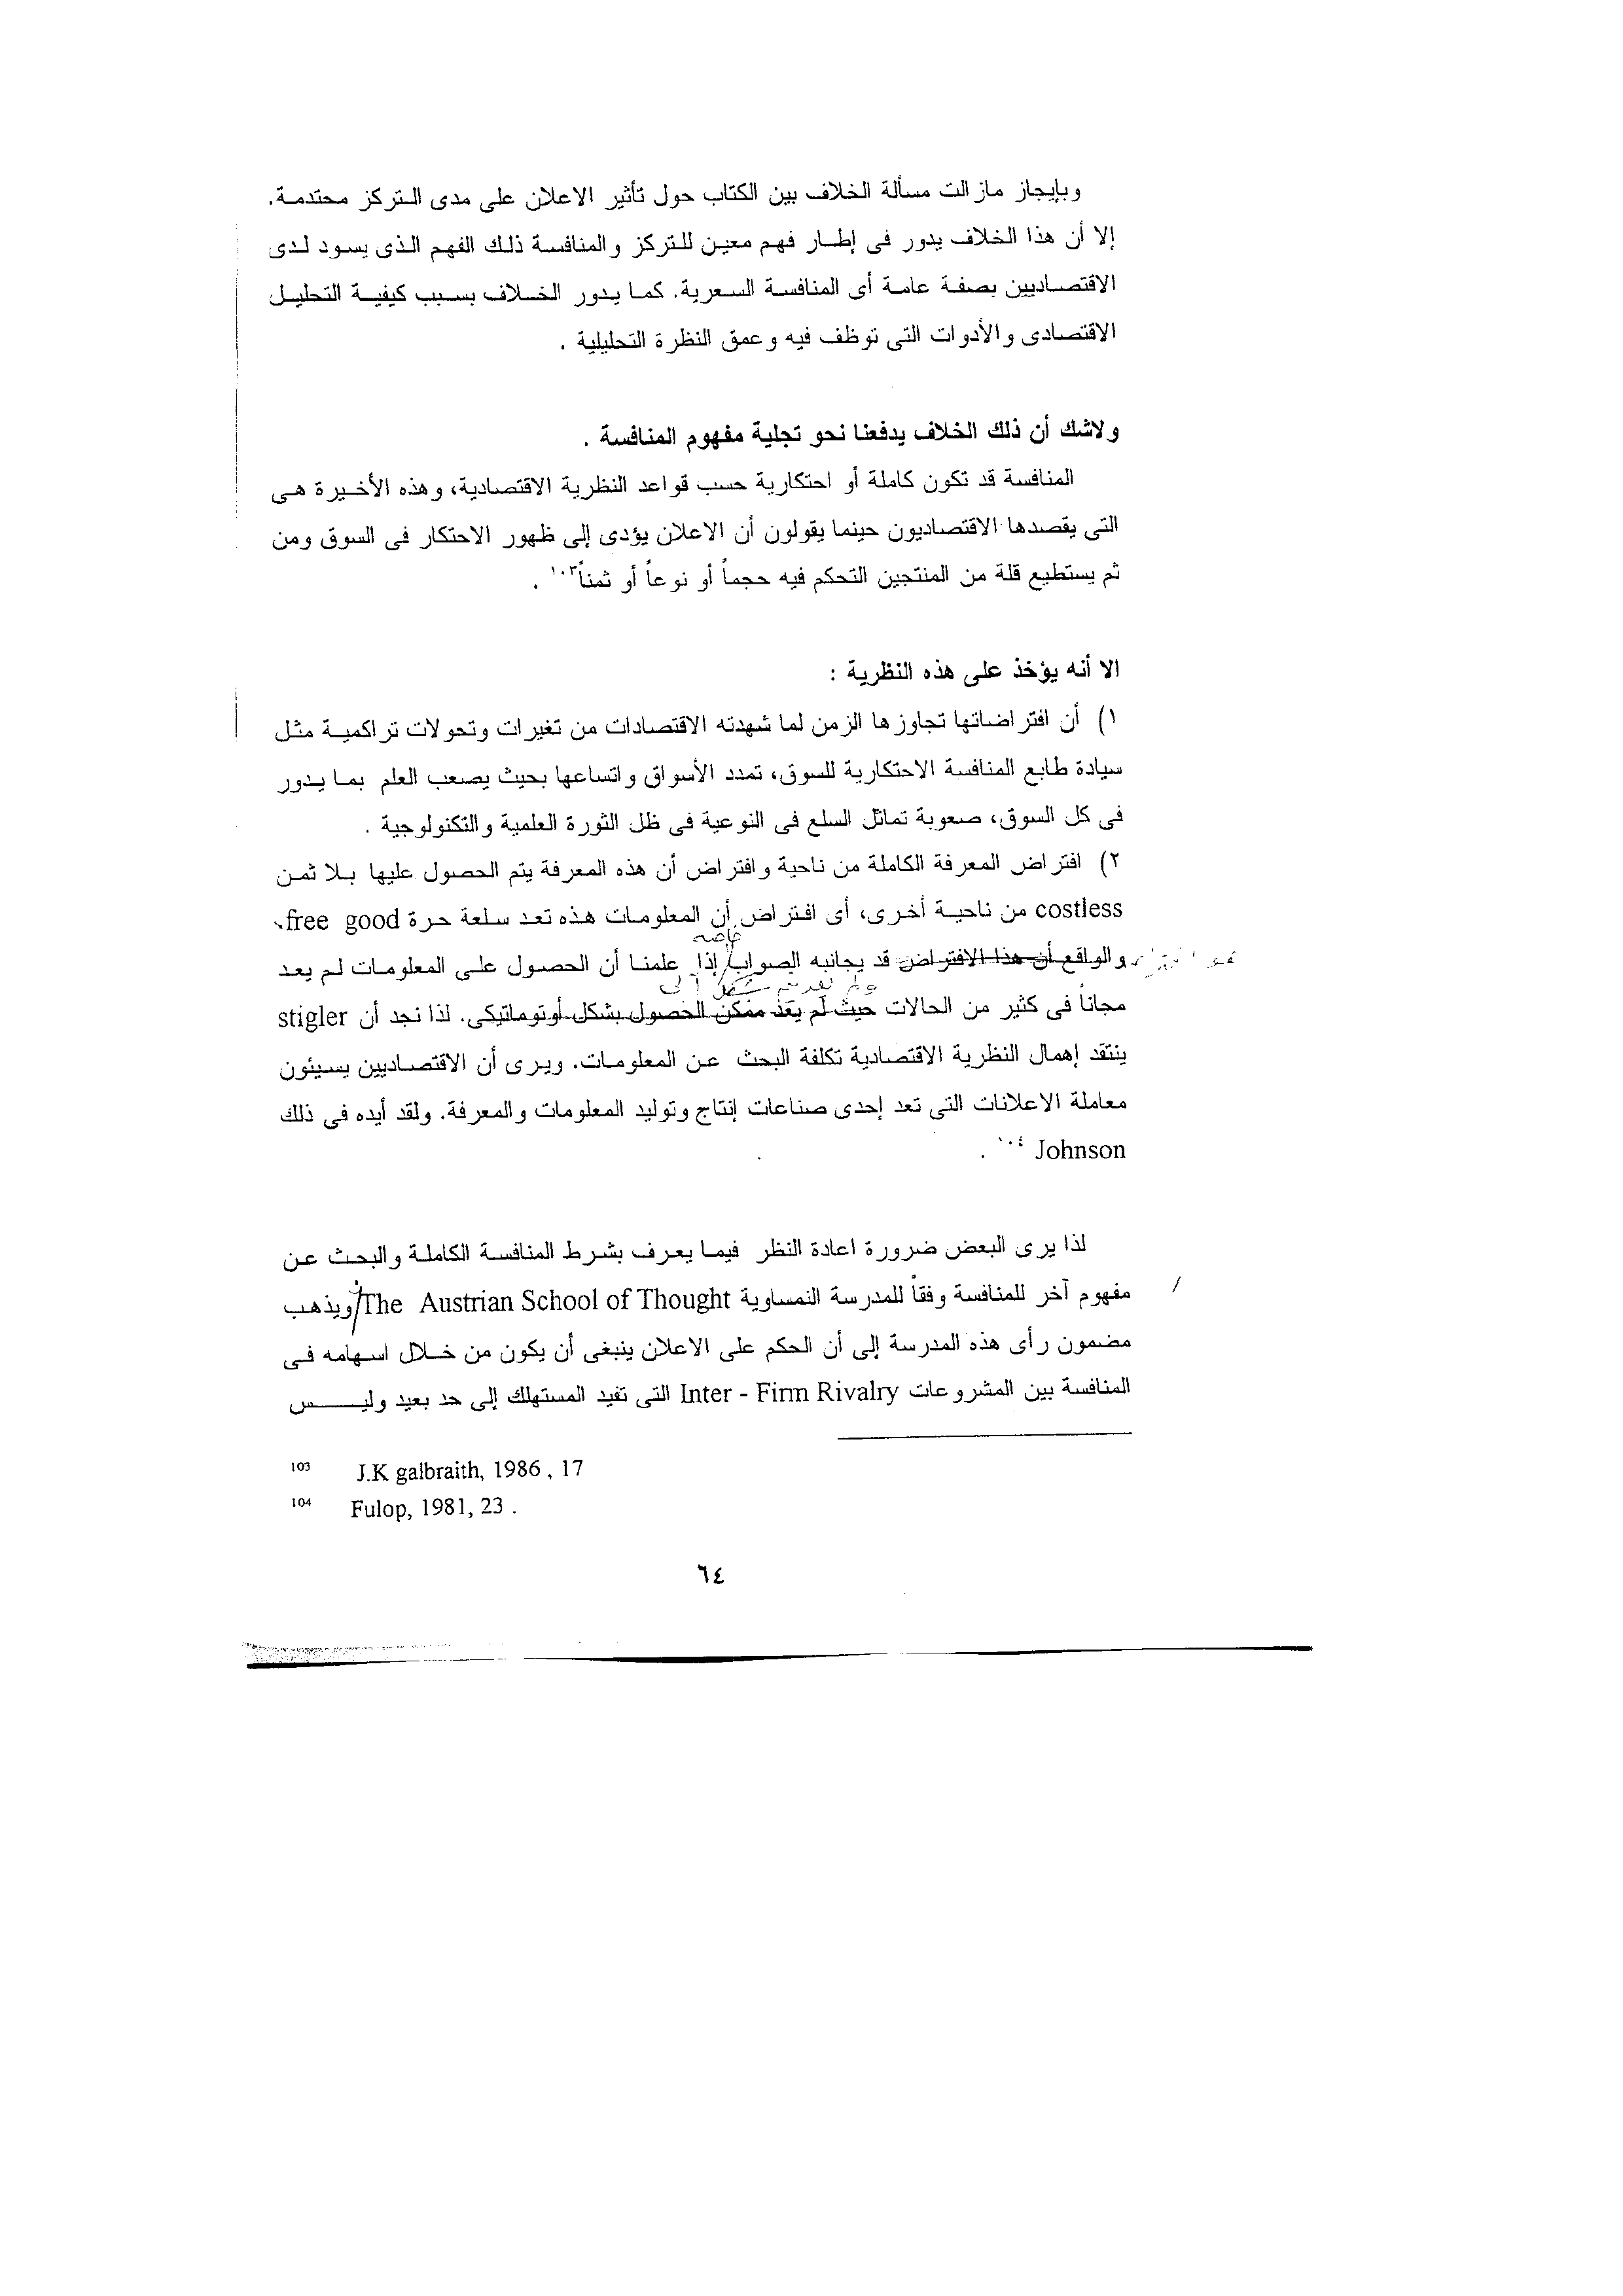 وبإيجاز مازالت مسألة الخلاف بين الكتاب حول تأثير الاعلان على مدى التركز محتدمة.
إلا أن هذا الخلاف يدور فى إطار فهم معين للتركز والمنافسة ذلك الفهم الذى يسود لدى
الاقتصاديين بصفة عامة أى المنافسة السعرية. كما يدور الخلاف بسبب كيفية التحليل
الاقتصادى والأدوات التى توظف فيه وعمق النظرة التحليلية .
ولاشك أن ذلك الخلاف يدفعنا نحو تجلية مفهوم المنافسة .
المنافسة قد تكون كاملة أو احتكارية حسب قواعد النظرية الاقتصادية، وهذه الأخيرة هى
التى يقصدها الاقتصاديون حينما يقولون أن الاعلان يؤدى إلى ظهور الاحتكار فى السوق ومن
ثم يستطيع قلة من المنتجين التحكم فيه حجماً أو نوعاً أو ثمناً١٠٣ .
الا أنه يؤخذ على هذه النظرية :
١) أن افتراضاتها تجاوزها الزمن لما شهدته الاقتصادات من تغيرات وتحولات تراكمية مثل
سيادة طابع المنافسة الاحتكارية للسوق، تمدد الأسواق واتساعها بحيث يصعب العلم بما يدور
فى كل السوق، صعوبة تماثل السلع فى النوعية فى ظل الثورة العلمية والتكنولوجية .
٢) افتراض المعرفة الكاملة من ناحية وافتراض أن هذه المعرفة يتم الحصول عليها بلا ثمن
costless من ناحية أخرى، أى افتراض أن المعلومات هذه تعد سلعة حرة free good،
خاصه
والواقع أن هذا الافتراض قد يجانبه الصواب إذا علمنا أن الحصول على المعلومات لم يعد
مجاناً فى كثير من الحالات حيث لم يعد ممكن الحصول بشكل أوتوماتيكى. لذا نجد أن stigler
ينتقد إهمال النظرية الاقتصادية تكلفة البحث عن المعلومات. ويرى أن الاقتصاديين يسيئون
معاملة الاعلانات التى تعد إحدى صناعات إنتاج وتوليد المعلومات والمعرفة. ولقد أيده فى ذلك
Johnson ١٠٤ .
لذا يرى البعض ضرورة اعادة النظر فيما يعرف بشرط المنافسة الكاملة والبحث عن
مفهوم آخر للمنافسة وفقاً للمدرسة النمساوية The Austrian School of Thought ويذهب
مضمون رأى هذه المدرسة إلى أن الحكم على الاعلان ينبغى أن يكون من خلال اسهامه فى
المنافسة بين المشروعات Inter - Firm Rivalry التى تفيد المستهلك إلى حد بعيد وليس
103 J.K galbraith, 1986 , 17
104 Fulop, 1981, 23 .
٦٤